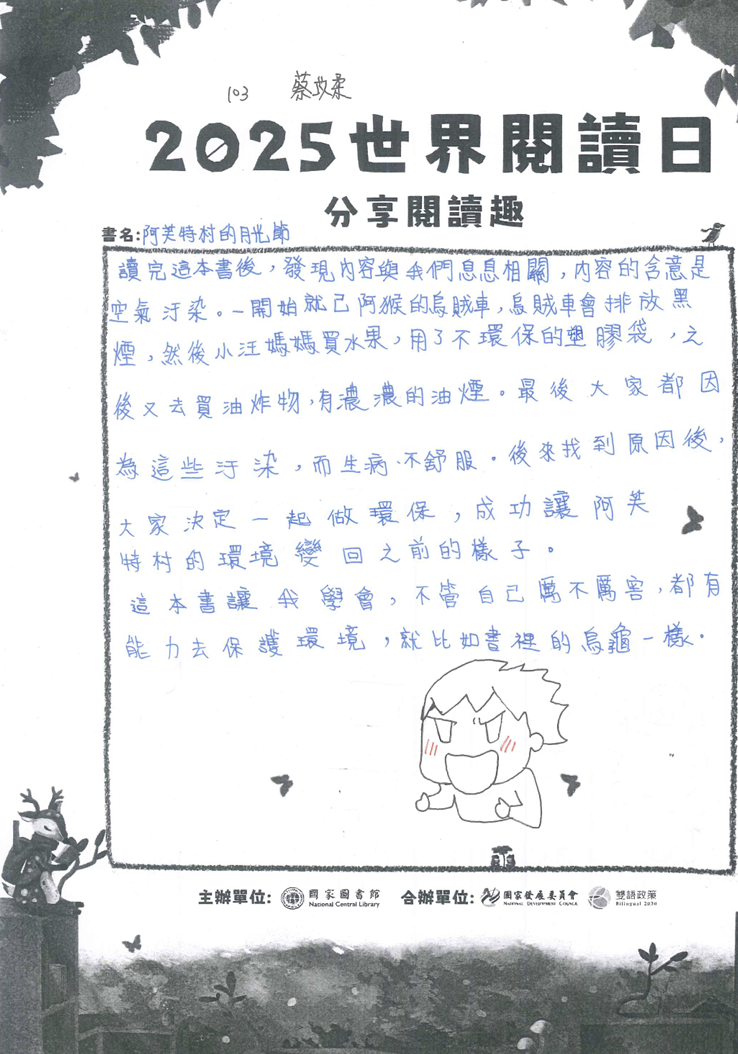 103 蔡玟柔
2025世界閱讀日
分享閱讀趣
書名:阿芙特村的月光節
讀完這本書後，發現內容與我們息息相關，內容的含意是
空氣汙染。一開始就已阿猴的烏賊車，烏賊車會排放黑
煙，然後小汪媽媽買水果，用了不環保的塑膠袋，之
後又去買油炸物，有濃濃的油煙。最後大家都因
為這些汙染，而生病、不舒服。後來找到原因後，
大家決定一起做環保，成功讓阿芙
特村的環境變回之前的樣子。
這本書讓我學會，不管自己厲不厲害，都有
能力去保護環境，就比如書裡的烏龜一樣。
主辦單位: 國家圖書館 National Central Library 合辦單位: 國家發展委員會 NATIONAL DEVELOPMENT COUNCIL 雙語政策 Bilingual 2030